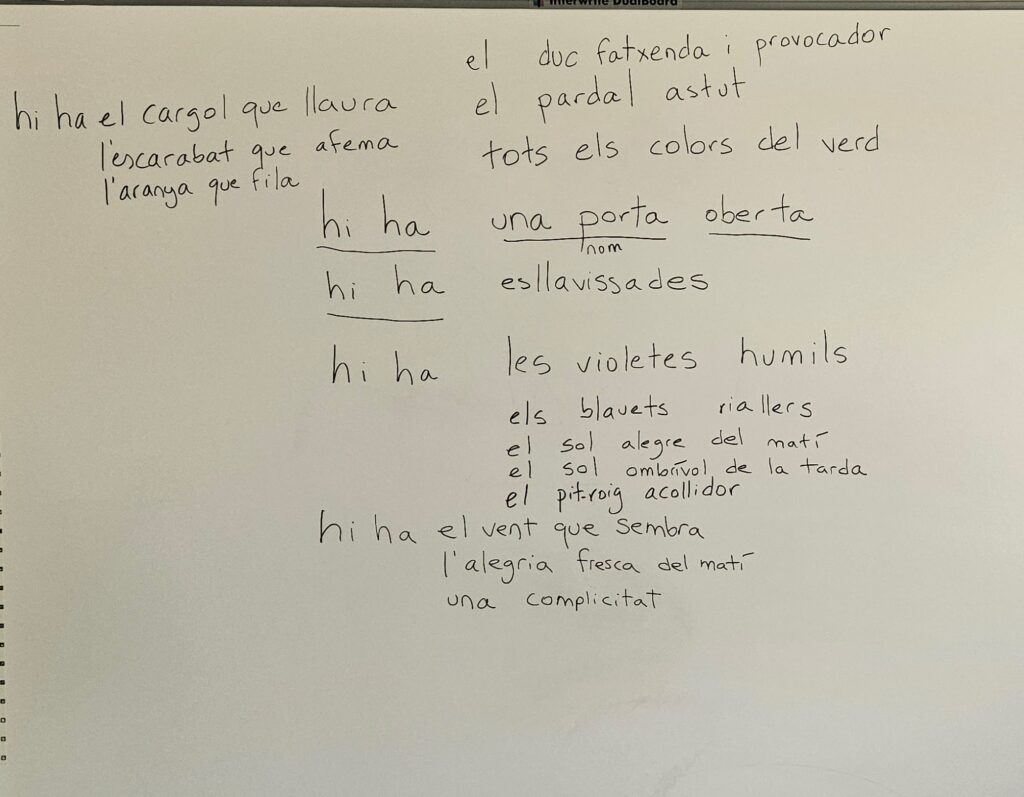 Interwrite DualBoard
el duc fatxenda i provocador
el pardal astut
tots els colors del verd
hi ha el cargol que llaura
l'escarabat que afema
l'aranya que fila
hi ha una porta oberta
nom
hi ha esllavissades
hi ha les violetes humils
els blauets riallers
el sol alegre del matí
el sol ombrívol de la tarda
el pit-roig acollidor
hi ha el vent que sembra
l'alegria fresca del matí
una complicitat